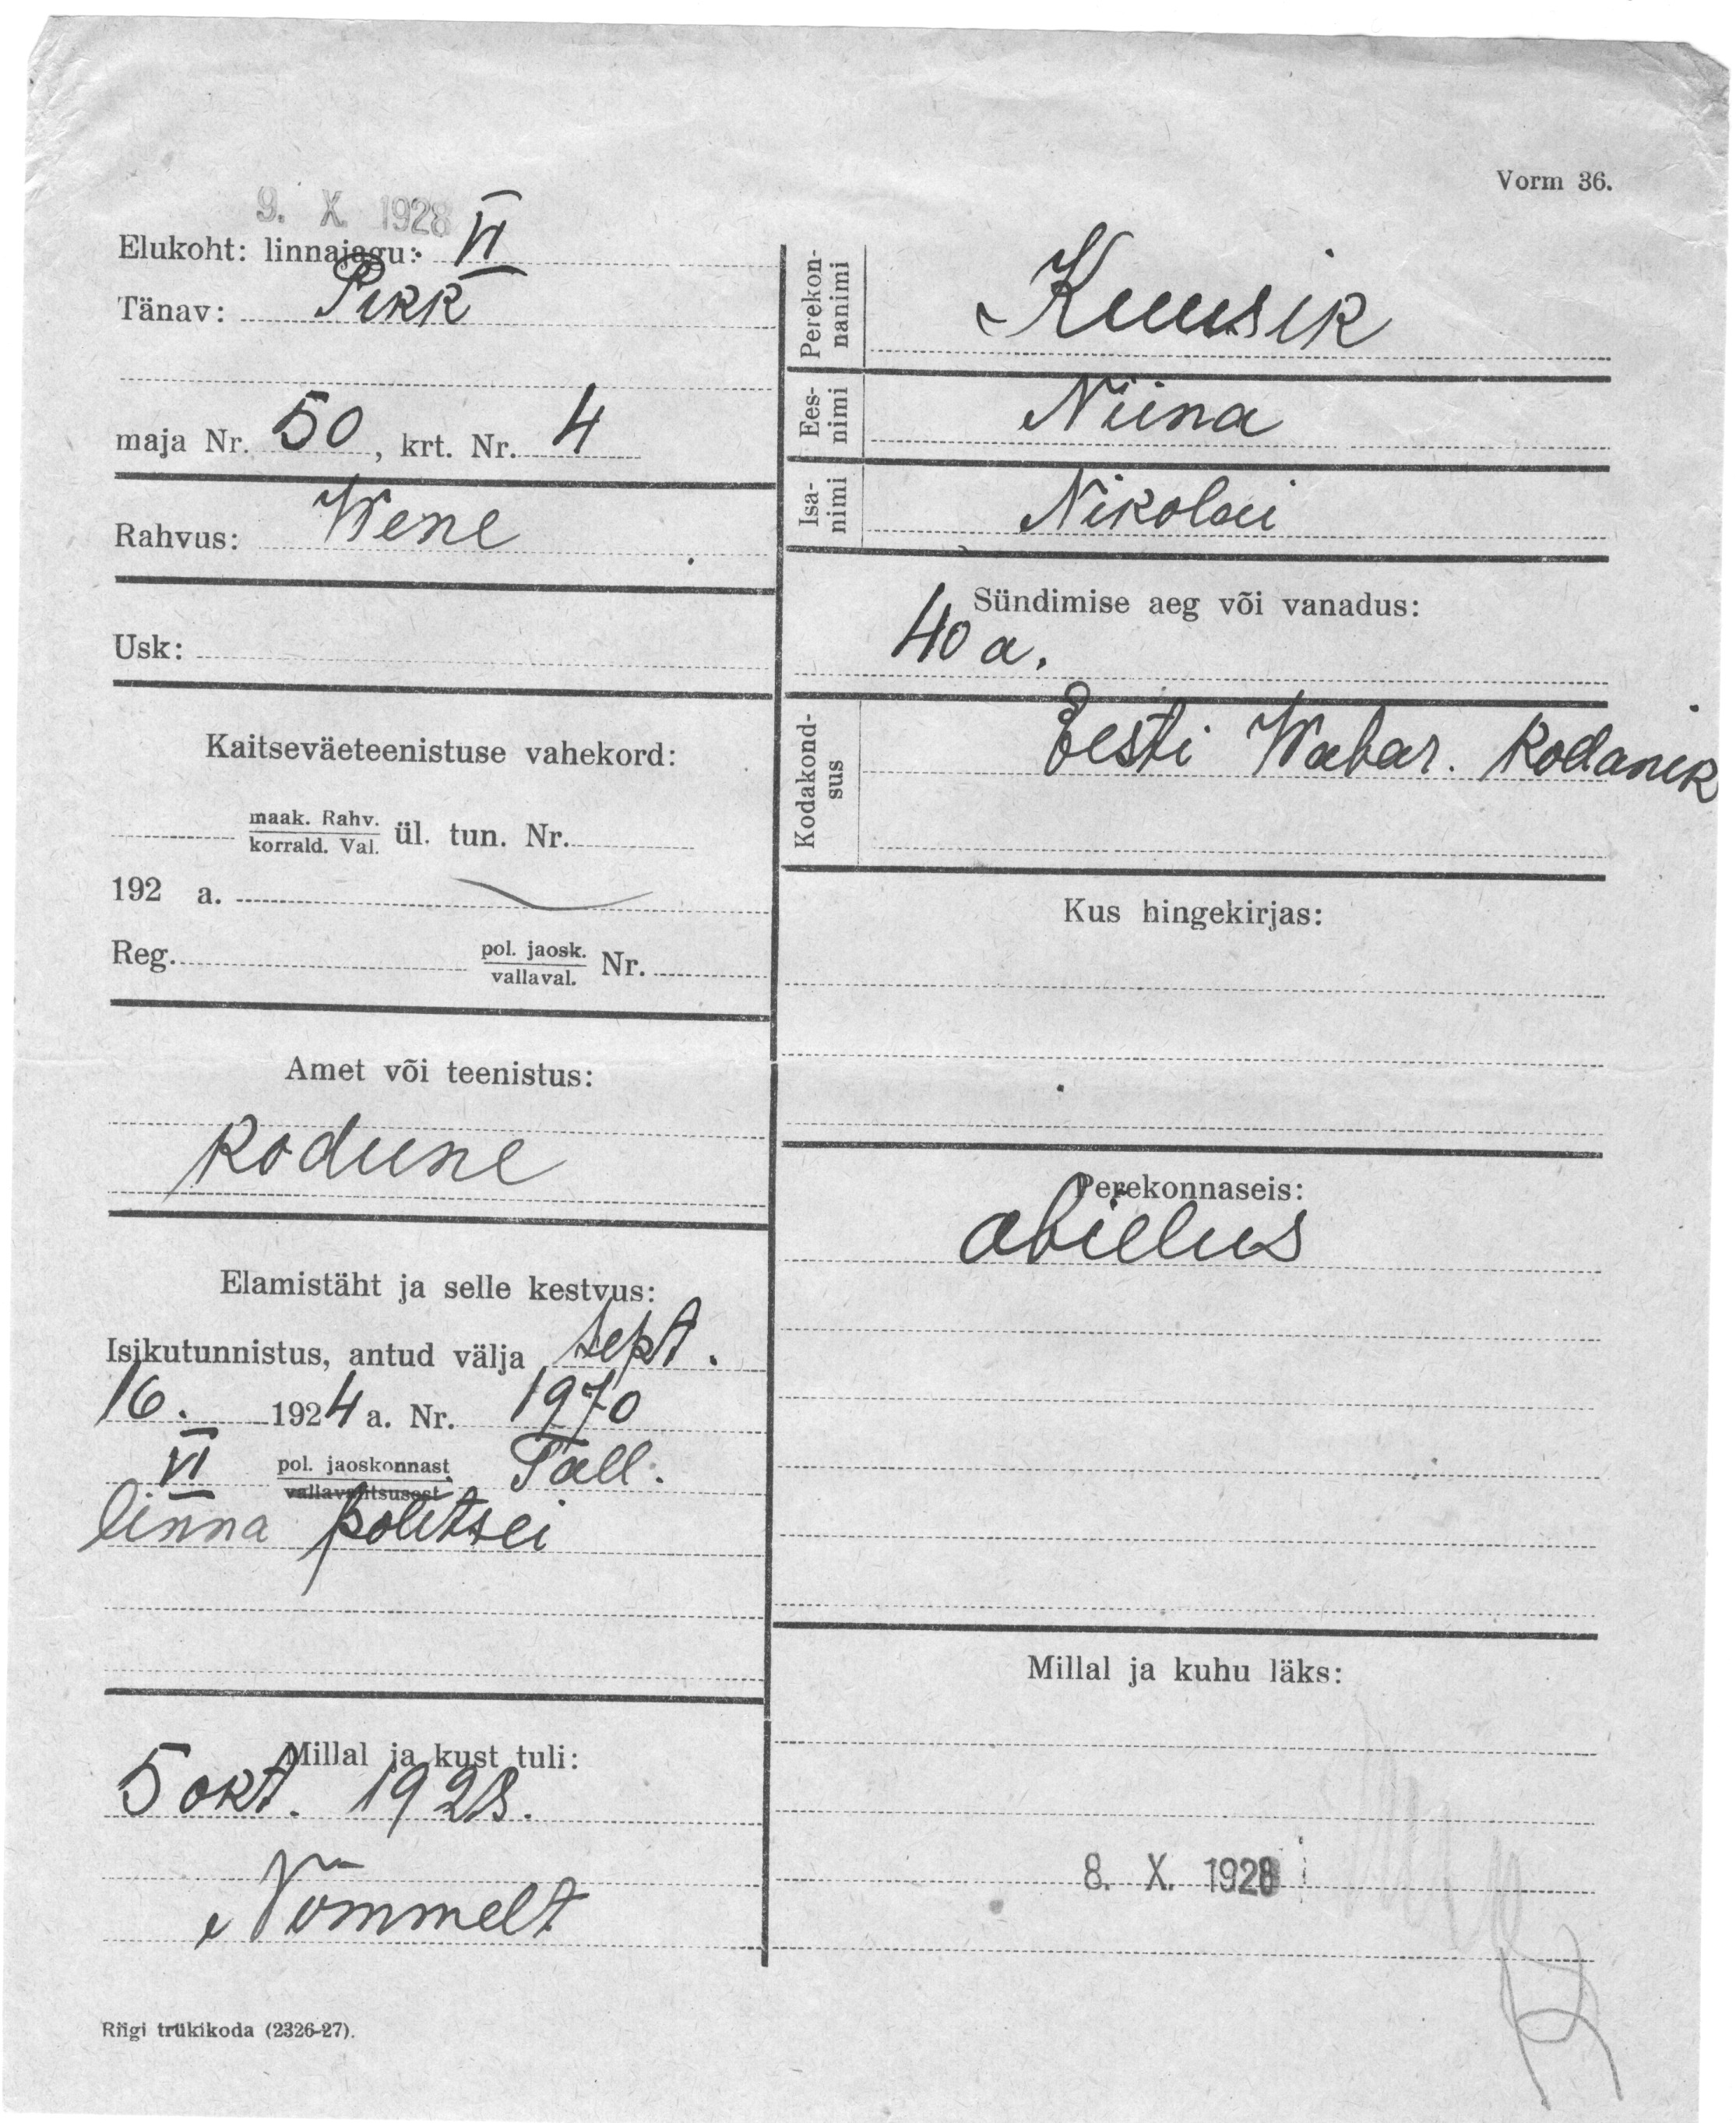 Vorm 36.
9. X. 1928
Elukoht: linnajagu: VI
Tänav: Pikk
maja Nr. 50, krt. Nr. 4
Rahvus: Wene
Usk:
Kaitseväeteenistuse vahekord:
maak. Rahv.
korrald. Val. ül. tun. Nr.
192 a.
Reg. pol. jaosk. Nr.
vallaval.
Amet või teenistus:
Kodune
Elamistäht ja selle kestvus:
Isikutunnistus, antud välja sept.
16. 1924 a. Nr. 1970
VI pol. jaoskonnast Tall.
vallavalitsusest
linna politsei
Millal ja kust tuli:
5 okt. 1928.
Nõmmelt
Riigi trükikoda (2326-27).
Perekon-
nanimi
Kuusik
Ees-
nimi
Niina
Isa-
nimi
Nikolai
Sündimise aeg või vanadus:
40 a.
Kodakond-
sus
Eesti Wabar. Kodanik
Kus hingekirjas:
Perekonnaseis:
abielus
Millal ja kuhu läks:
8. X. 1928